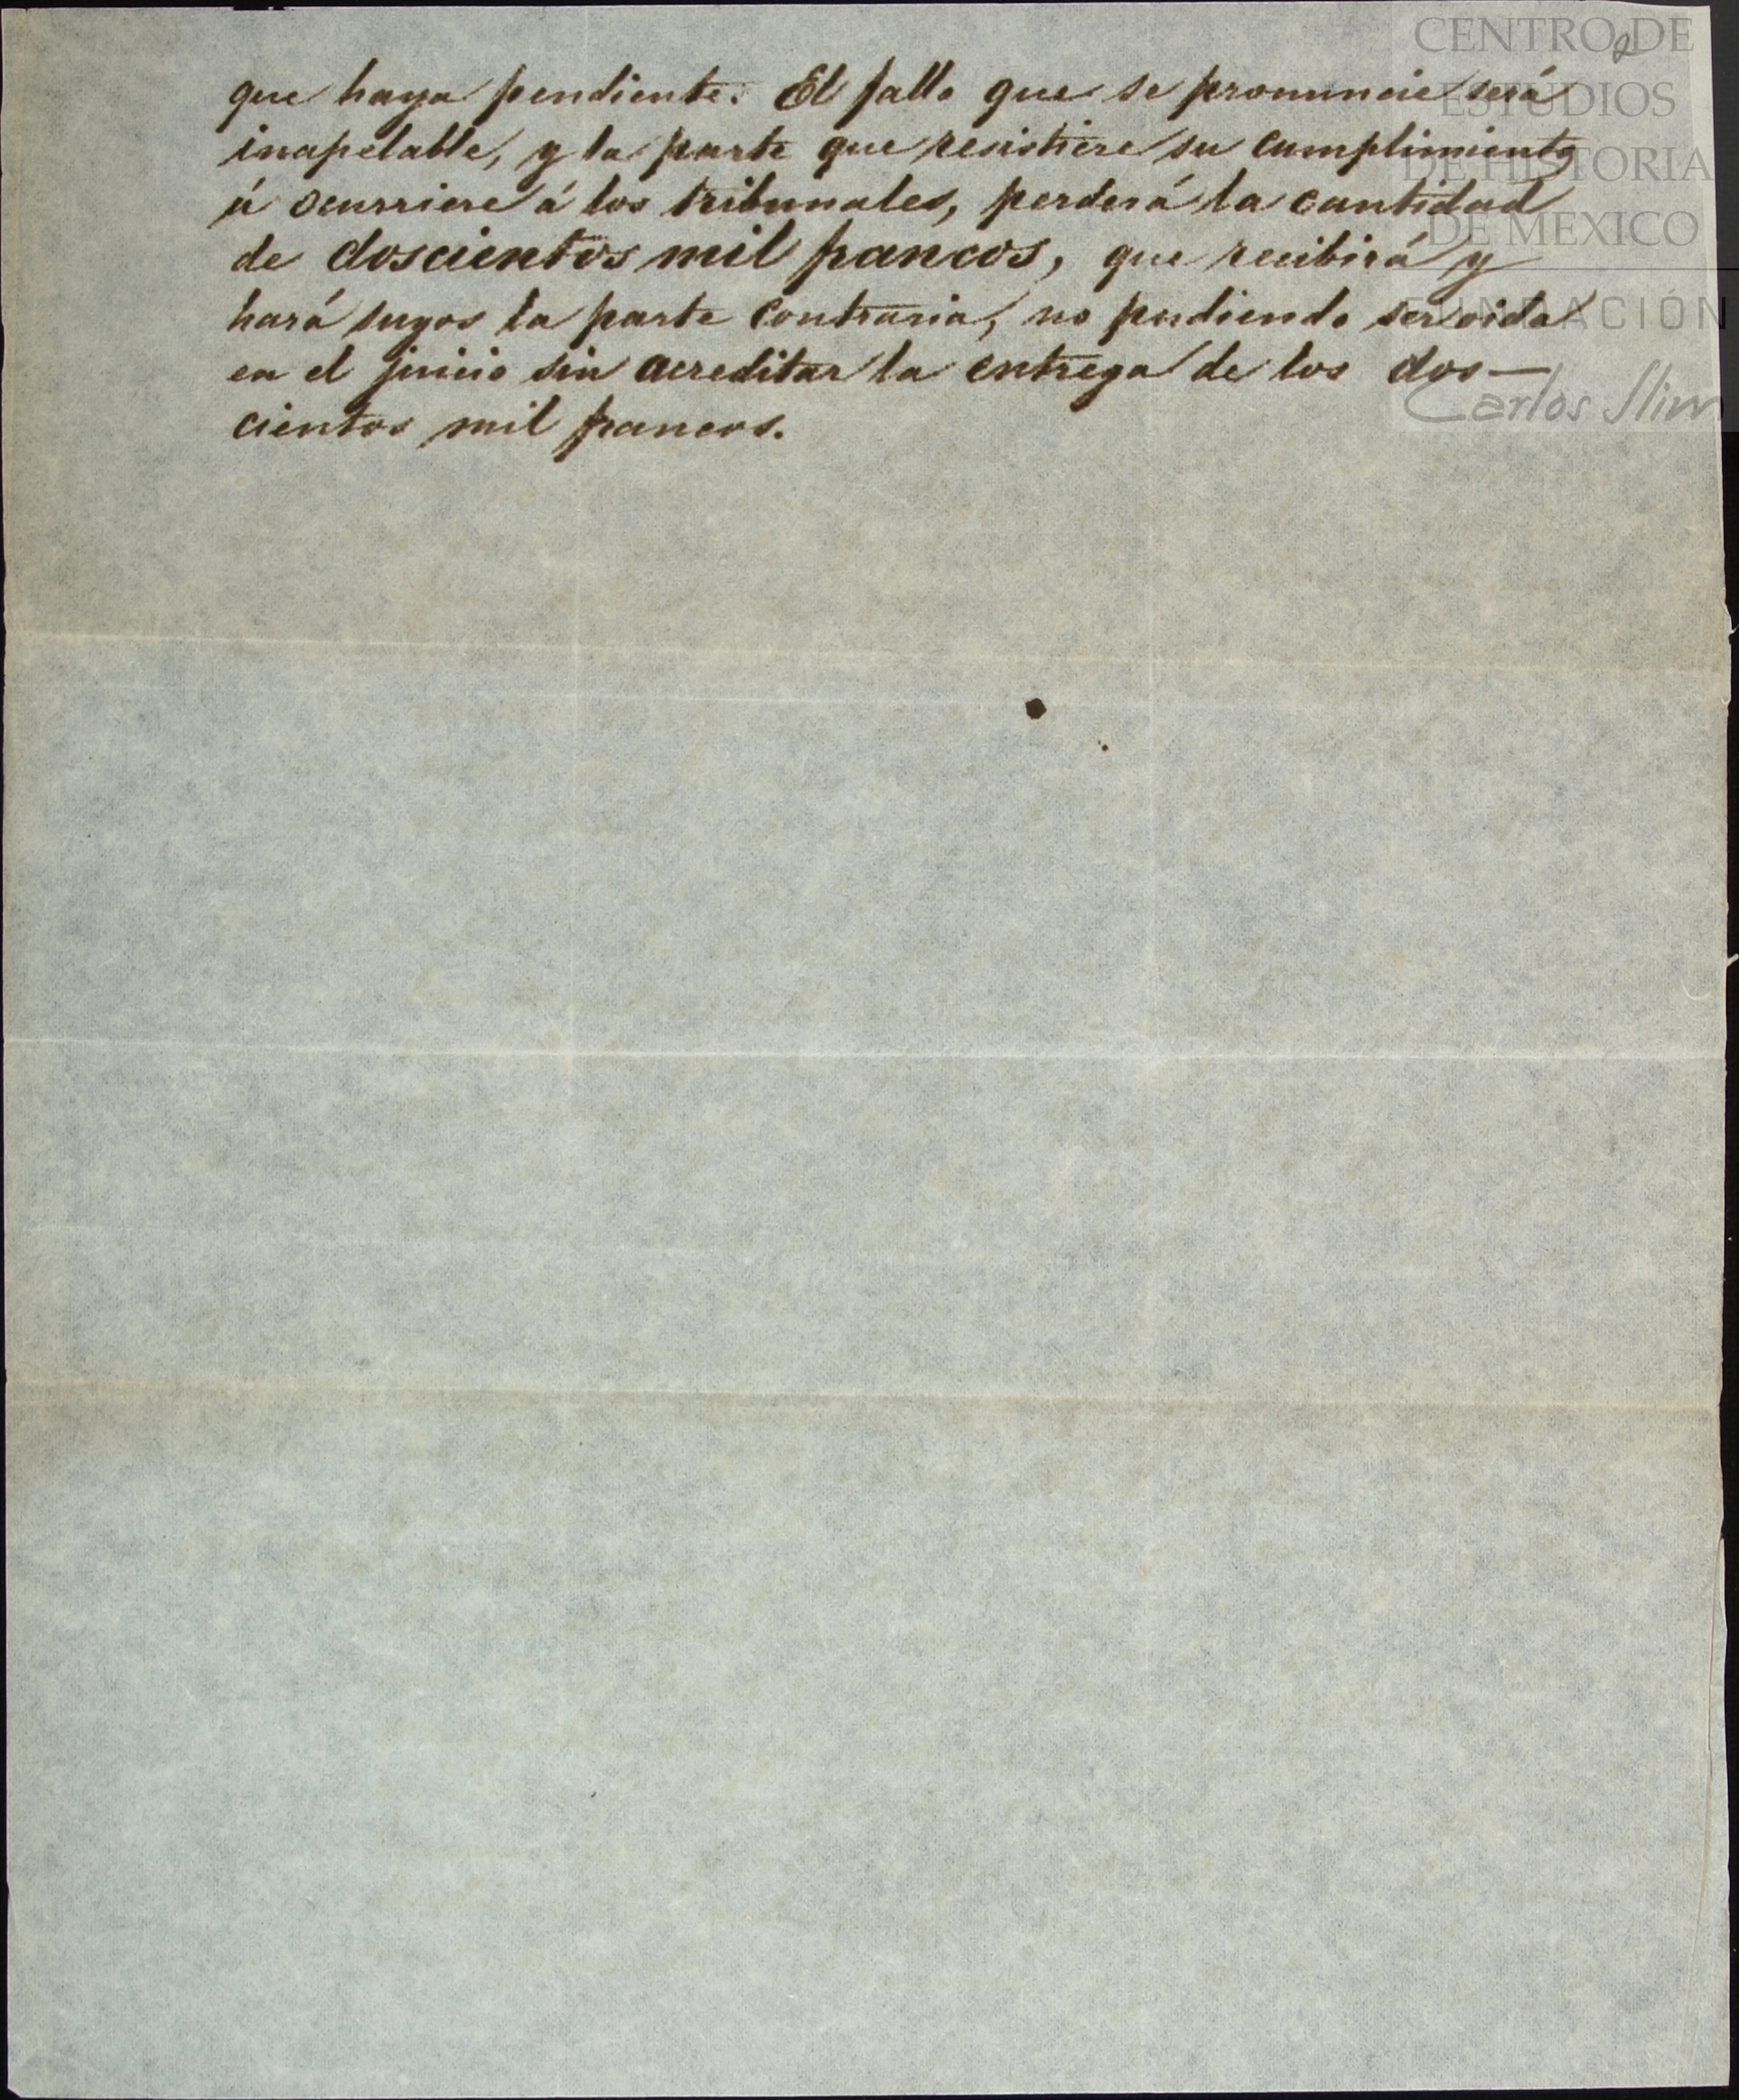 CENTRO DE
ESTUDIOS
DE HISTORIA
DE MEXICO
FUNDACIÓN
Carlos Slim
2
que haya pendiente. El fallo que se pronuncie será
inapelable, y la parte que resistiere su cumplimiento
ú ocurriere á los tribunales, perderá la cantidad
de doscientos mil francos, que recibirá y
hará suyos la parte contraria, no pudiendo ser oida
en el juicio sin acreditar la entrega de los dos—
cientos mil francos.